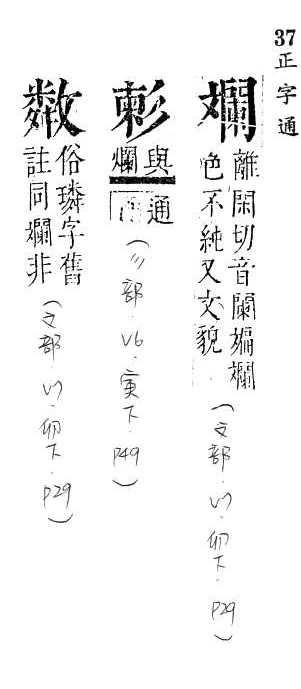 37正字通
斕
離閑切音闌斒斕
色不純又文貌
(文部．V7．卯下．P29)
與
斕
通
(彡部．V6．寅下．P49)
俗璘字舊
註同斕非
(文部．V7．卯下．P29)